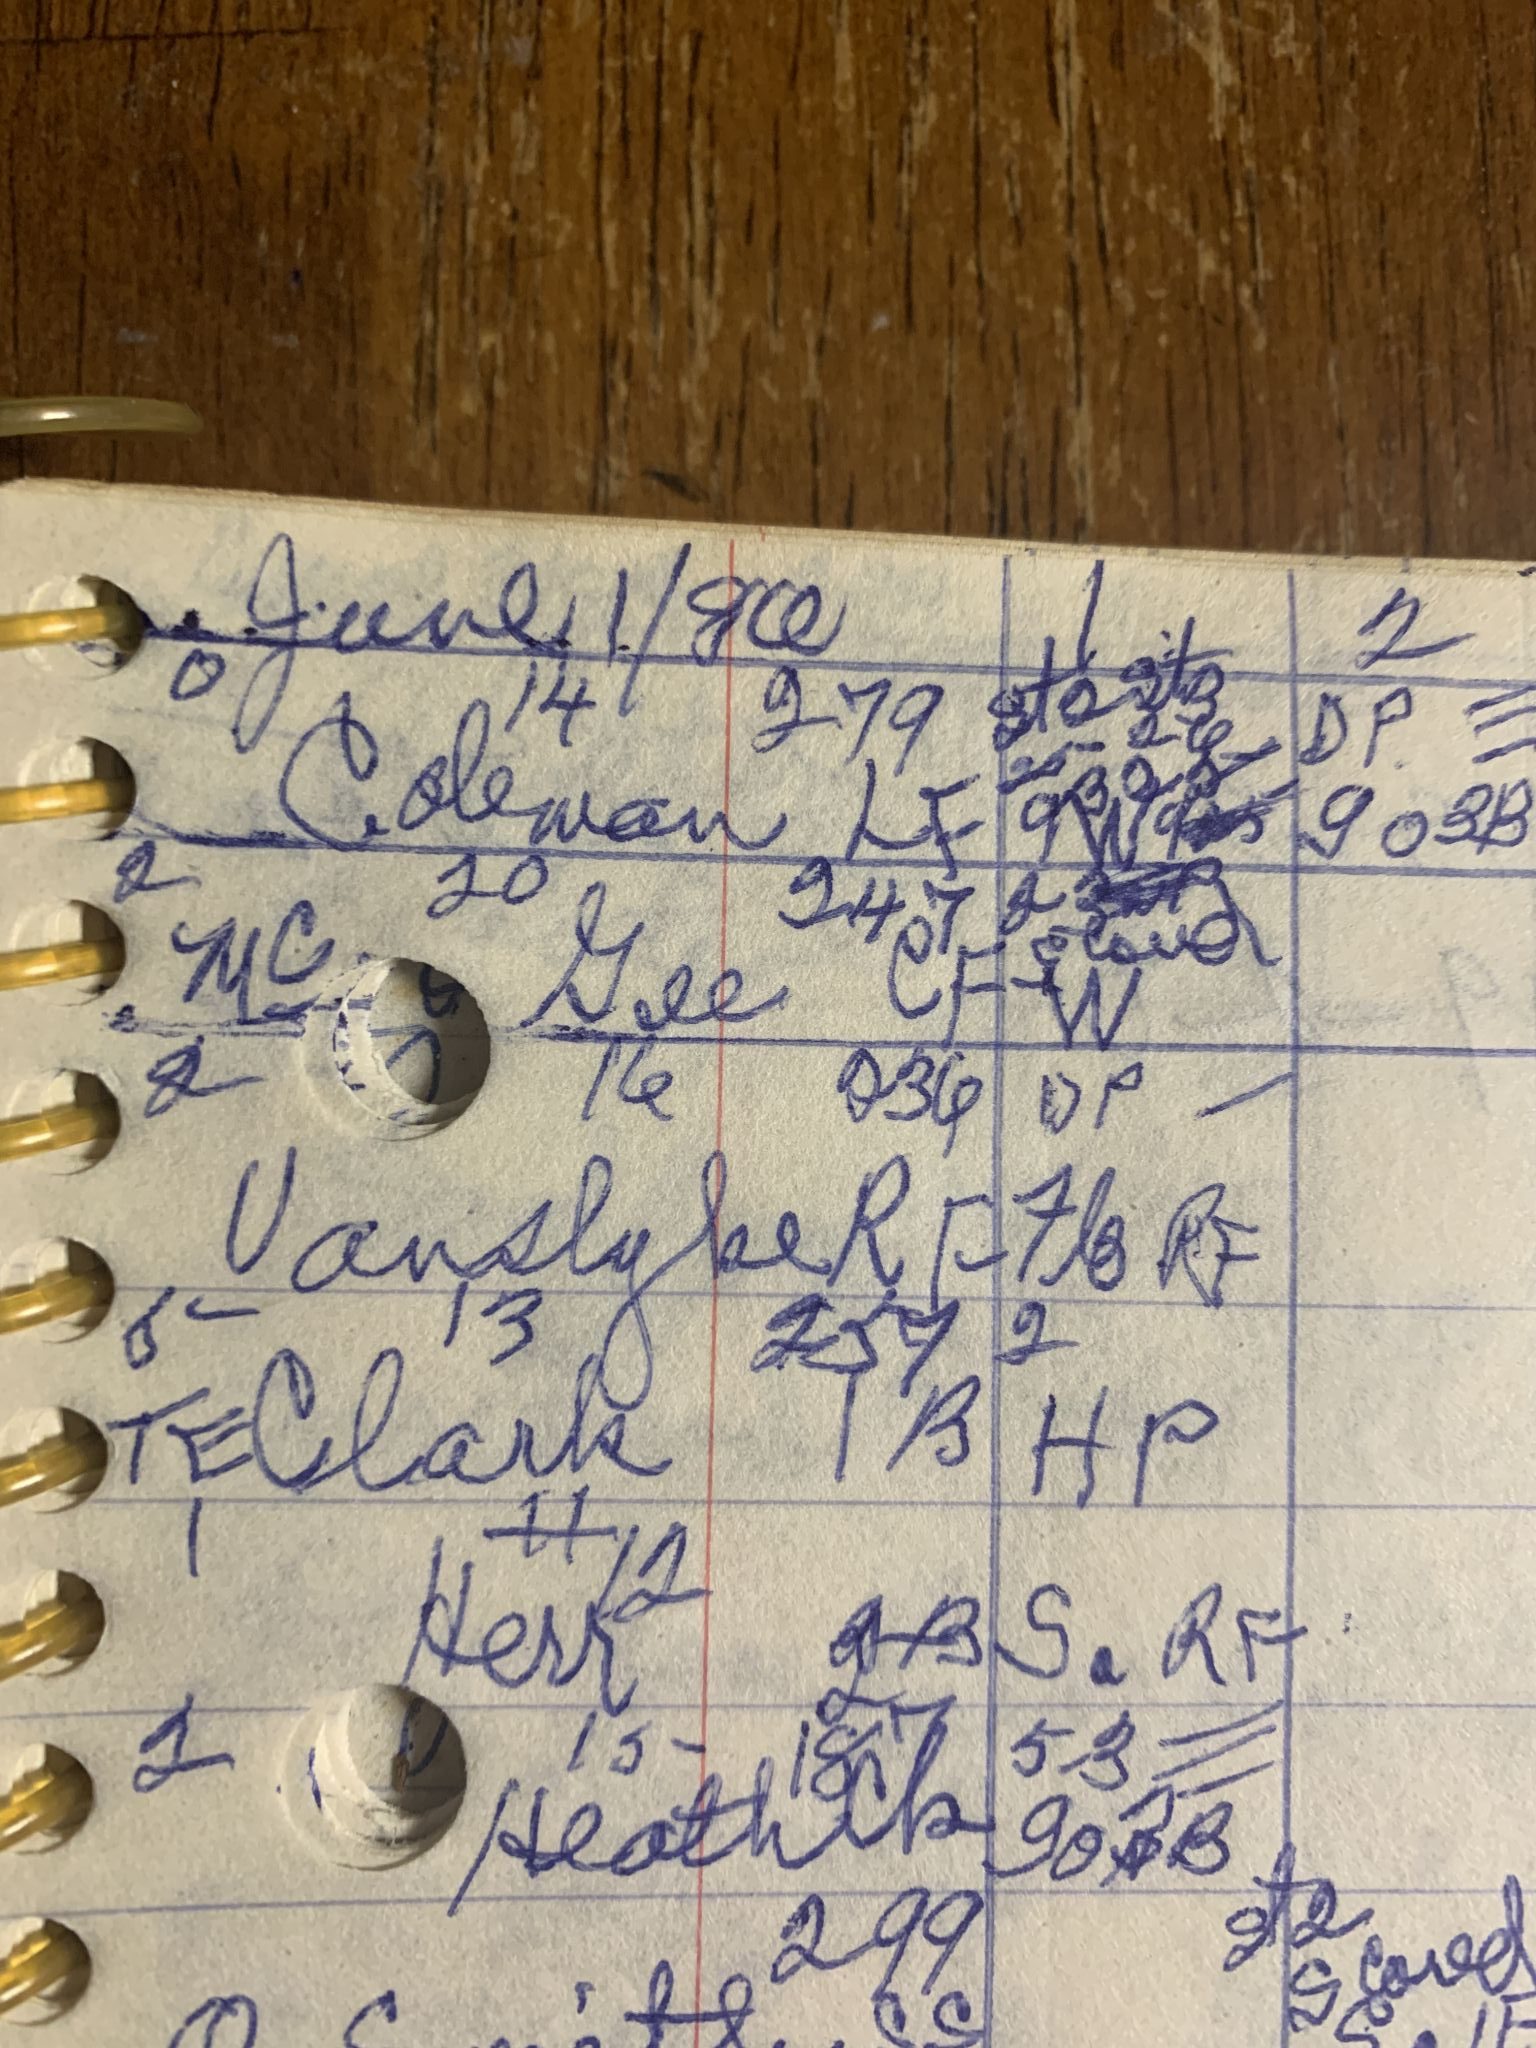 June 11/86 1 2
0 14 279 St2 St3 DP
Coleman LF 9 W 903B
2 20 247 2 3
Mc Gee CF Scored W
2 16 236 DP
Vanslyke RF 7/8 RF
5 13 257 2
TE Clark 1B HP
1 11 12
Herr 2B S. RF
2 15 187 53
Heath 903B
299 St2
O. Smith SS Scored